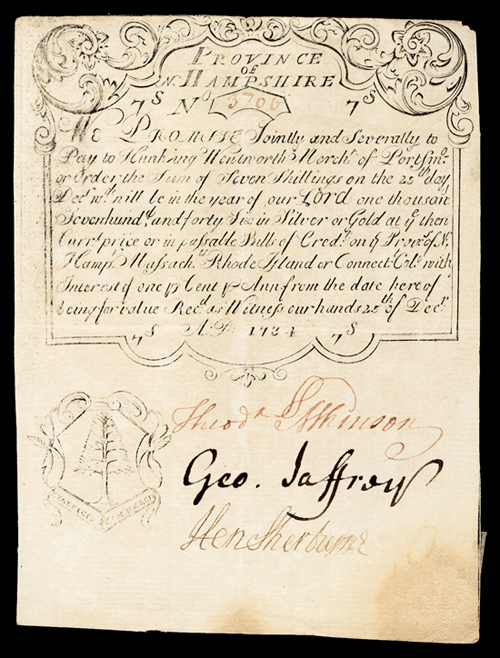 PROVINCE
OF
N. HAMPSHIRE
7S No 5706 7S
WE PROMISE Jointly and Severally to
Pay to Hunking Wentworth Mercht of Portsmo
or Order the Sum of Seven Shillings on the 25th day
Decr wch will be in the year of our LORD one thousan
Sevenhundd and forty Six in Silver or Gold at ye then
Currt price or in passable Bills of Credt on ye Provce of N.
Hampr Massachts Rhode Island or Connectt Coly with
Interest of one p Cent p Ann from the date here of
being for value Recd as Witness our hands 25th of Decr
7S A.D. 1734 7S
Theodr Atkinson
Geo. Jaffrey
Hen Sherburne